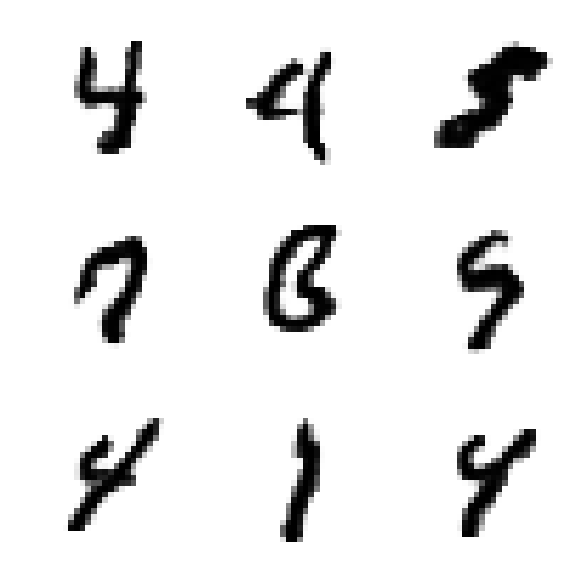 4 4 5
7 8 5
4 1 4